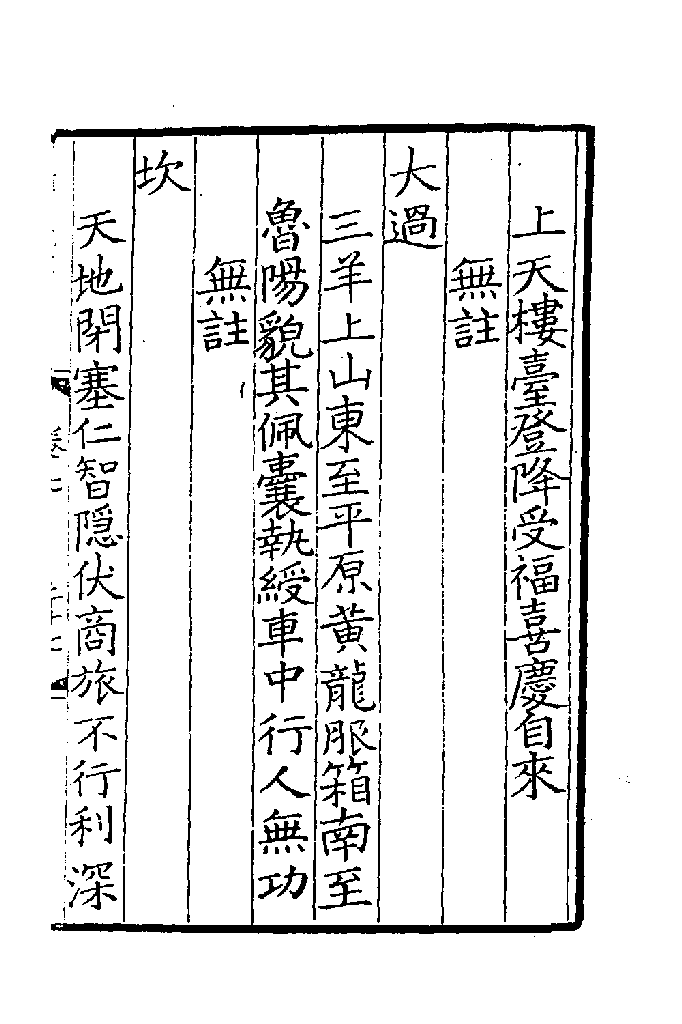 上天樓臺登降受福喜慶自來
無註
大過
三羊上山東至平原黃龍服箱南至
魯陽貌其佩囊執綬車中行人無功
無註
坎
天地閉塞仁智隱伏商旅不行利深